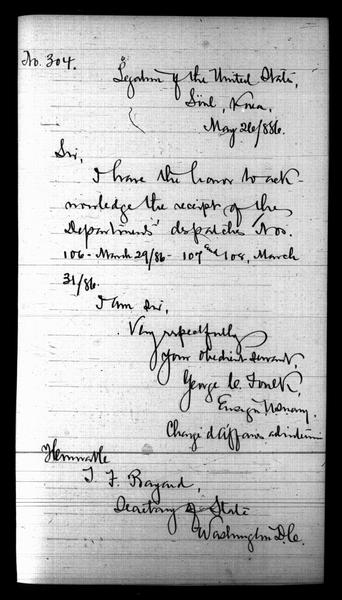 No. 304.
Legation of the United States,
Söul, Korea,
May 26/886.
Sir,
I have the honor to ack-
nowledge the receipt of the
Departments' dispatches Nos.
106 - March 29/86 - 107 and 108, March
31/86.
I am Sir,
Very respectfully
Your obedient servant,
George C. Foulk,
Ensign U.S. Navy.
Chargé d'Affaires ad interim
Honorable
T. F. Bayard,
Secretary of State
Washington D.C.